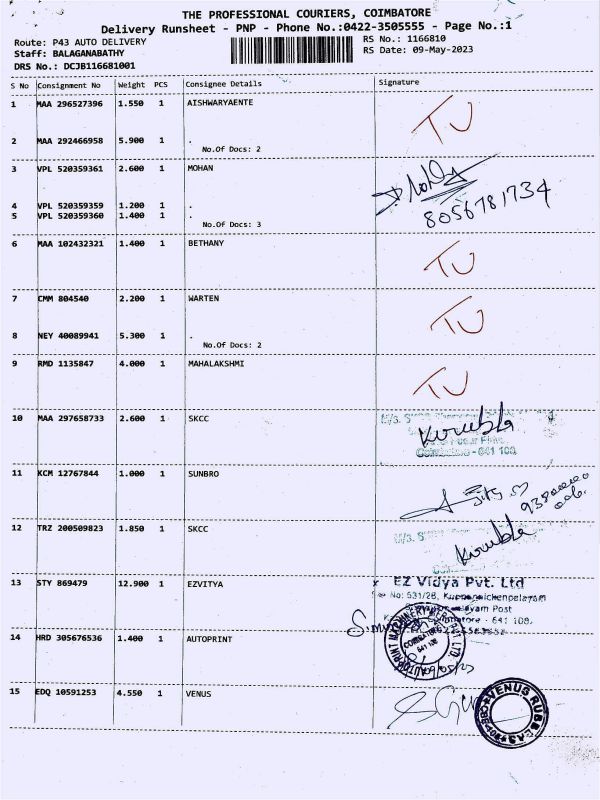 THE PROFESSIONAL COURIERS, COIMBATORE
Delivery Runsheet - PNP - Phone No.:0422-3505555 - Page No.:1
Route: P43 AUTO DELIVERY
RS No.: 1166810
Staff: BALAGANABATHY
RS Date: 09-May-2023
DRS No.: DCJB116681001
S No Consignment No Weight PCS Consignee Details Signature
1 MAA 296527396 1.550 1 AISHWARYAENTE
TU
2 MAA 292466958 5.900 1 .
No.Of Docs: 2
3 VPL 520359361 2.600 1 MOHAN
4 VPL 520359359 1.200 1 .
5 VPL 520359360 1.400 1 .
8056781734
No.Of Docs: 3
6 MAA 102432321 1.400 1 BETHANY
TU
7 CMM 804540 2.200 1 WARTEN
TU
8 NEY 40089941 5.300 1 .
No.Of Docs: 2
9 RMD 1135847 4.000 1 MAHALAKSHMI
TU
10 MAA 297658733 2.600 1 SKCC
Coimbatore - 641 100
11 KCM 12767844 1.000 1 SUNBRO
12 TRZ 200509823 1.850 1 SKCC
13 STY 869479 12.900 1 EZVITYA
EZ Vidya Pvt. Ltd
No: 531/2B,
Post
14 HRD 305676536 1.400 1 AUTOPRINT
AUTOPRINT MACHINERY
COIMBATORE
15 EDQ 10591253 4.550 1 VENUS
VENUS RUBBER